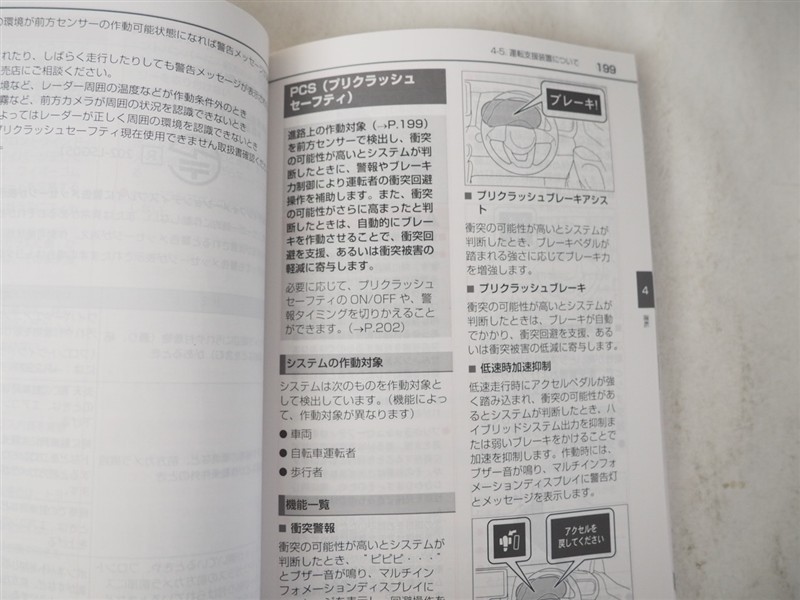 の環境が前方センサーの作動可能状態になれば警告メッセー
れたり、しばらく走行したりしても警告メッセージが
売店にご相談ください。
境など、レーダー周囲の温度などが作動条件外のとき
霧など、前方カメラが周囲の状況を認識できないとき
よってはレーダーが正しく周囲の環境を認識できないとき
プリクラッシュセーフティ現在使用できません取扱書確認
4-5. 運転支援装置について
199
PCS（プリクラッシュ
セーフティ）
進路上の作動対象（→P.199）
を前方センサーで検出し、衝突
の可能性が高いとシステムが判
断したときに、警報やブレーキ
力制御により運転者の衝突回避
操作を補助します。また、衝突
の可能性がさらに高まったと判
断したときは、自動的にブレー
キを作動させることで、衝突回
避を支援、あるいは衝突被害の
軽減に寄与します。
必要に応じて、プリクラッシュ
セーフティの ON/OFF や、警
報タイミングを切りかえること
ができます。（→P.202）
システムの作動対象
システムは次のものを作動対象と
して検出しています。（機能によっ
て、作動対象が異なります）
● 車両
● 自転車運転者
● 歩行者
機能一覧
■ 衝突警報
衝突の可能性が高いとシステムが
判断したとき、“ピピピ・・・”
とブザー音が鳴り、マルチイン
フォメーションディスプレイに
ブレーキ!
■ プリクラッシュブレーキアシス
ト
衝突の可能性が高いとシステムが
判断したとき、ブレーキペダルが
踏まれる強さに応じてブレーキ力
を増強します。
■ プリクラッシュブレーキ
衝突の可能性が高いとシステムが
判断したときは、ブレーキが自動
でかかり、衝突回避を支援、ある
いは衝突被害の低減に寄与します。
■ 低速時加速抑制
低速走行時にアクセルペダルが強
く踏み込まれ、衝突の可能性があ
るとシステムが判断したとき、ハ
イブリッドシステム出力を抑制ま
たは弱いブレーキをかけることで
加速を抑制します。作動時には、
ブザー音が鳴り、マルチインフォ
メーションディスプレイに警告灯
とメッセージを表示します。
アクセルを
戻してください
4